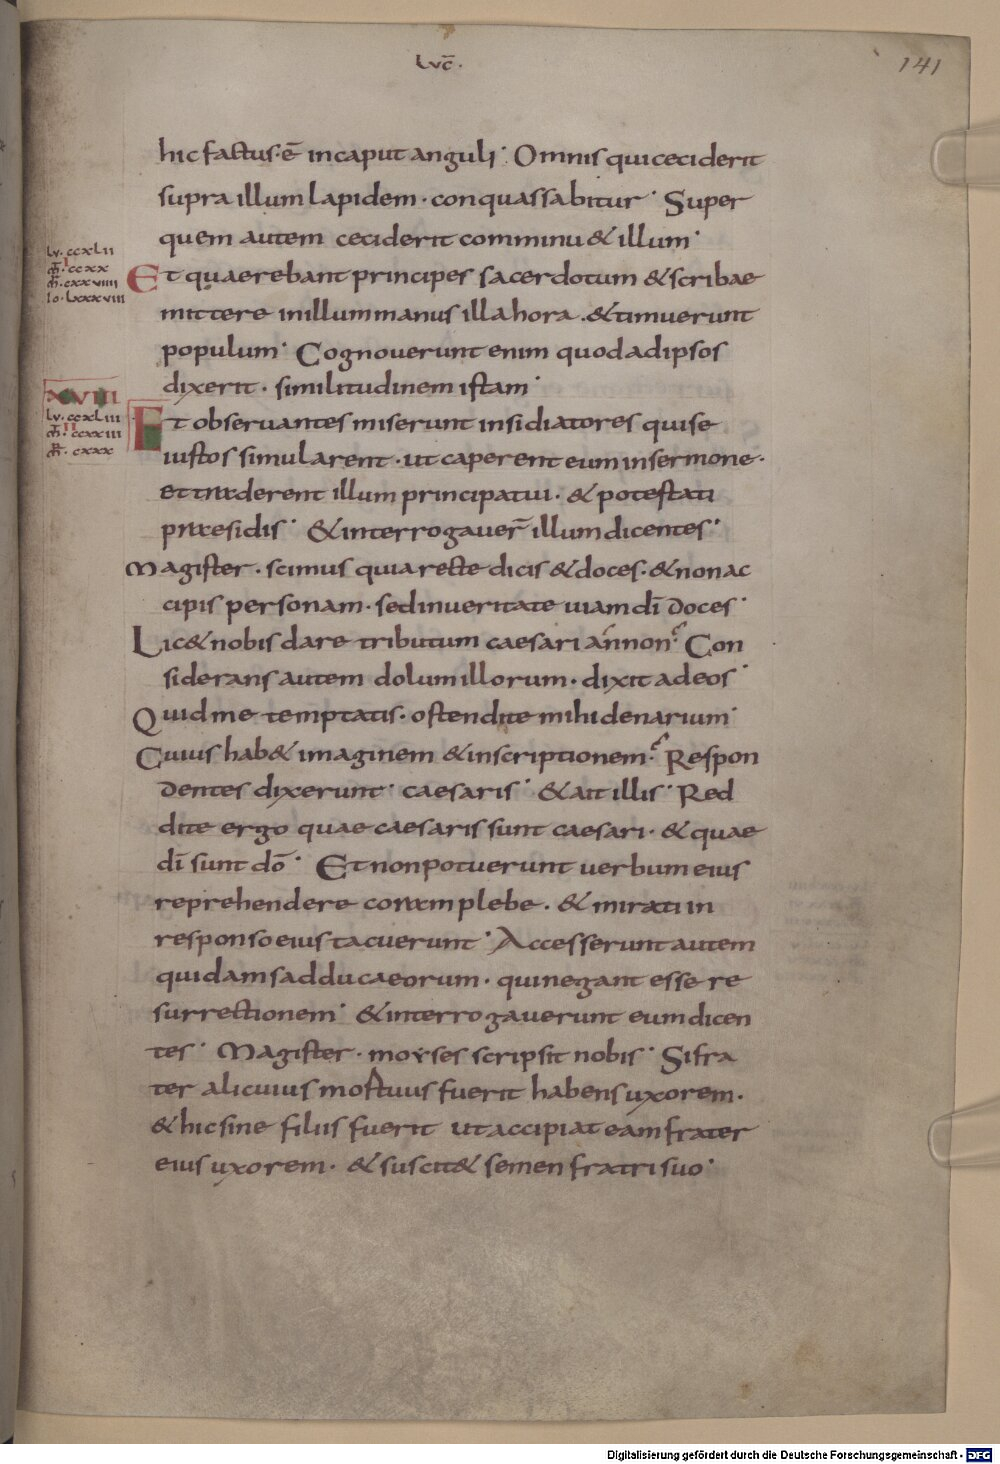 Lvc̄.
141
hic factus·ē in caput anguli· Omnis qui ceciderit
supra illum lapidem· conquassabitur· Super
quem autem ceciderit comminu& illum·
lv. ccxlii
m̄. ccxx
m̄r. cxxviiii
Io. lxxxviii
Et quaerebant principes sacerdotum & scribae
mittere in illum manus illa hora· & timuerunt
populum· Cognouerunt enim quod ad ipsos
dixerit· similitudinem istam·
XVIII
lv. ccxliii
m̄. ccxxiii
m̄r. cxxx
Et obseruantes miserunt insidiatores qui se
iustos simularent· ut caperent eum in sermone·
et traderent illum principatui· & potestati
praesidis· & interrogauer̄ illum dicentes·
Magister· scimus quia recte dicis & doces· & non ac
cipis personam· sed in ueritate uiam dī doces·
Lic& nobis dare tributum caesari an non? Con
siderans autem dolum illorum· dixit ad eos·
Quid me temptatis· ostendite mihi denarium·
Cuius hab& imaginem & inscriptionem? Respon
dentes dixerunt· caesaris· & ait illis· Red
dite ergo quae caesaris sunt caesari· & quae
dī sunt dō· Et non potuerunt uerbum eius
reprehendere coram plebe· & mirati in
responso eius tacuerunt· Accesserunt autem
quidam sadducaeorum· qui negant esse re
surrectionem· & interrogauerunt eum dicen
tes· Magister· moyses scripsit nobis· Si fra
ter alicuius mortuus fuerit habens uxorem·
& hic sine filiis fuerit ut accipiat eam frater
eius uxorem· & suscit& semen fratri suo·
Digitalisierung gefördert durch die Deutsche Forschungsgemeinschaft - DFG